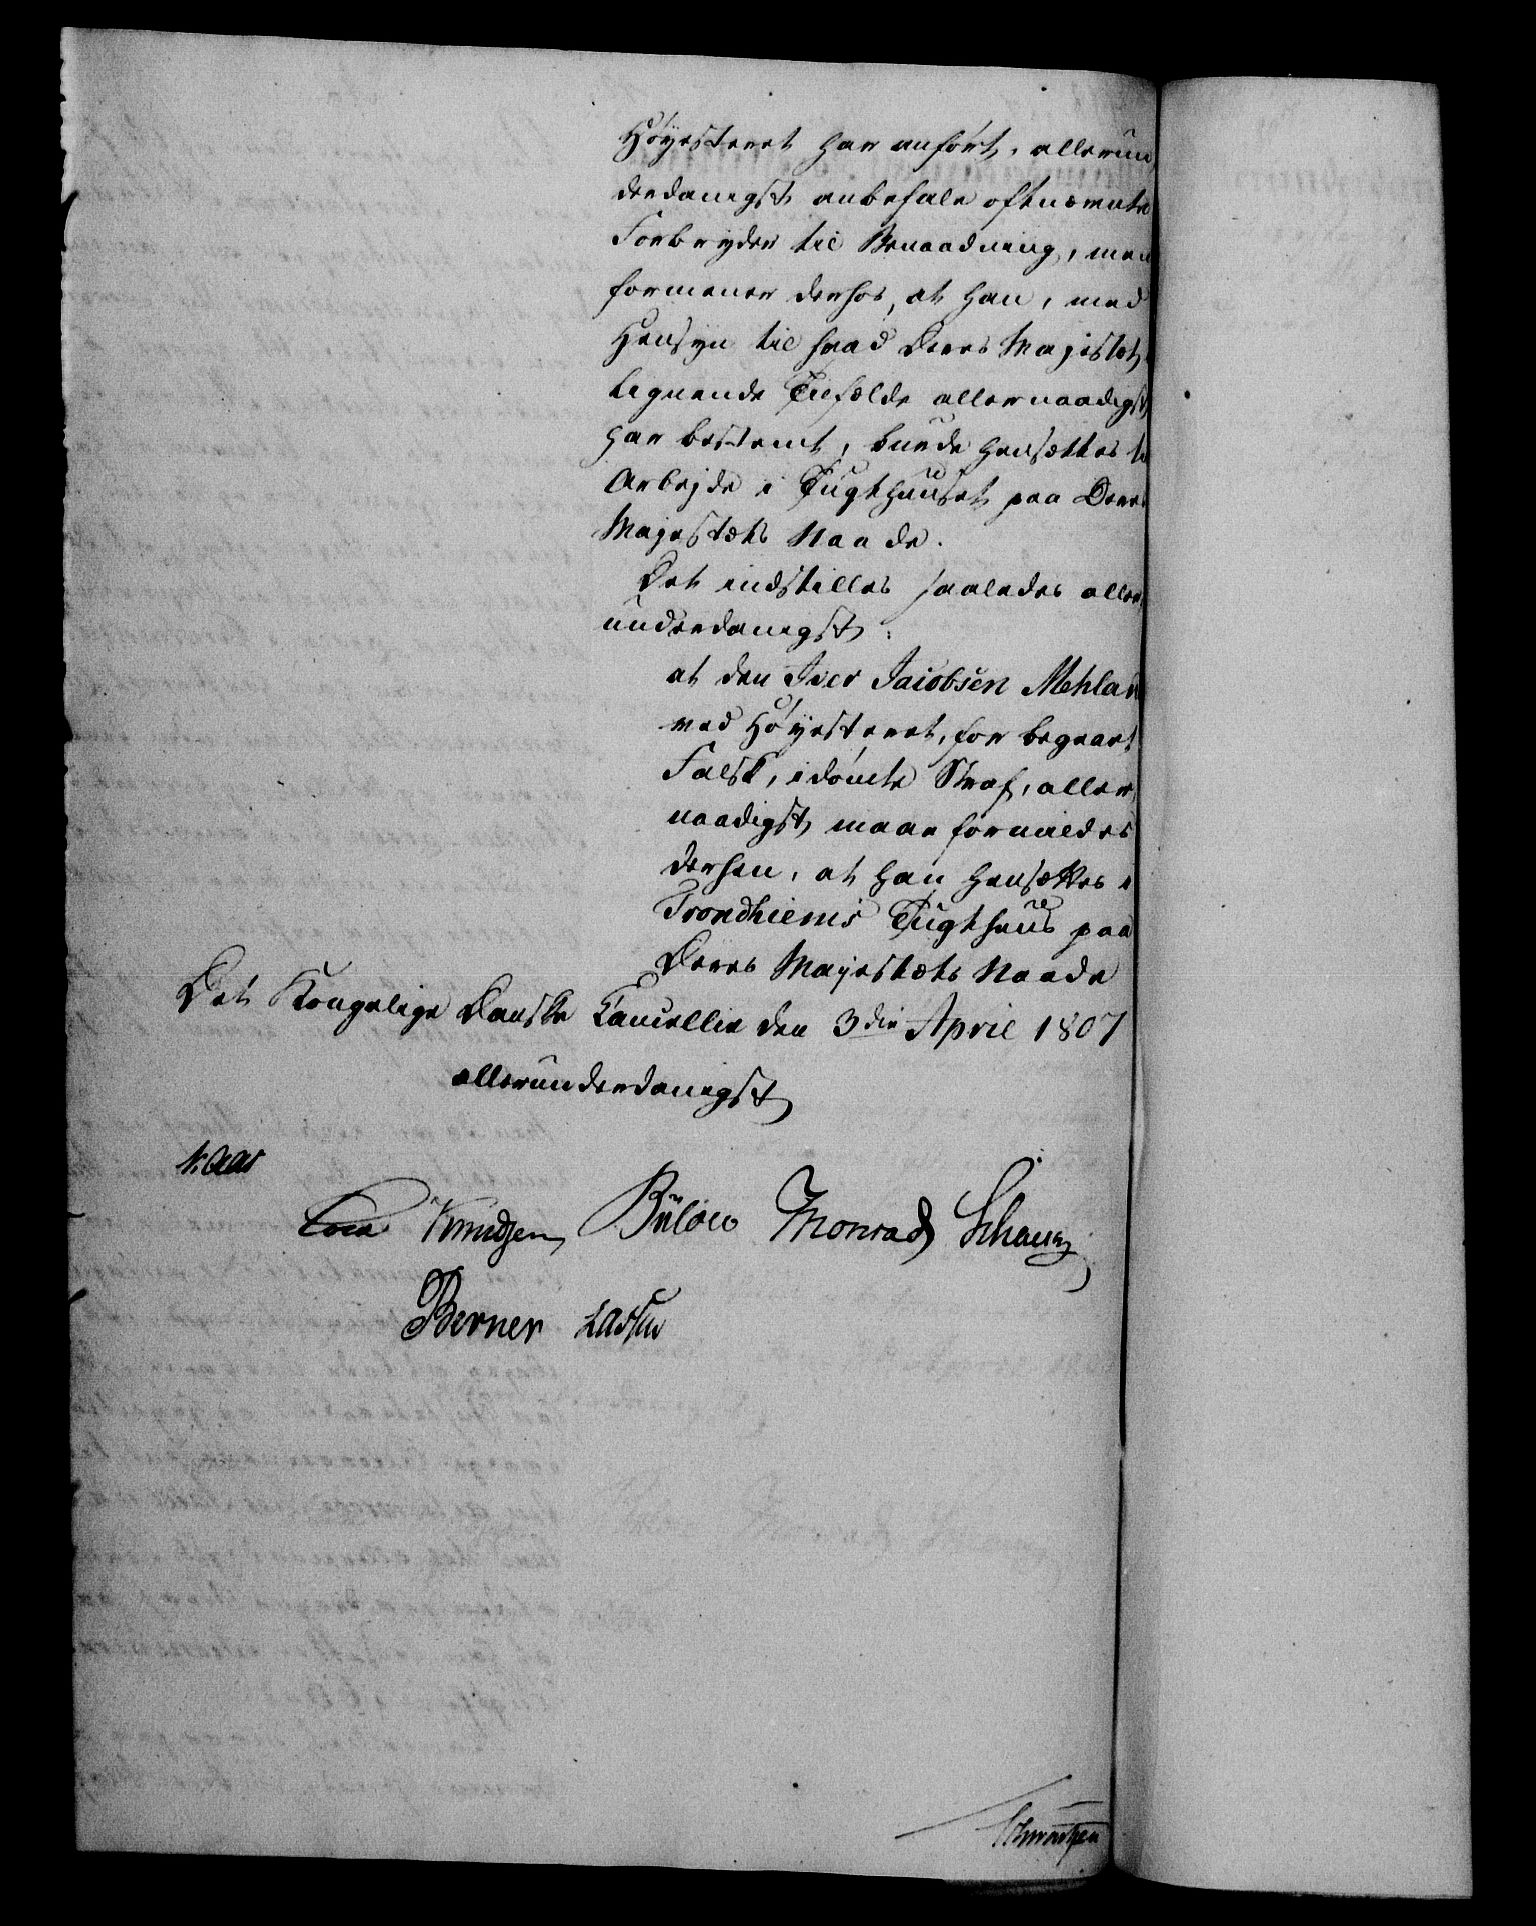 Høyesteret har anført, allerun
derdanigst anbefale oftnævnte
Forbryder til Benaadning, men
formener derhos, at han, med
Hensyn til hvad Deres Majestæt
lignende Tilfælde allernaadigst
har bestemt, burde hensættes
Arbejde i Tugthuuset paa Deres
Majestæts Naade.
Det indstilles saaledes aller
underdanigst:
at den Iver Jacobsen Mehla
ved Høyesteret, for begaaet
Falsk, idømte Straf, aller
naadigst maae formildes
derhen, at han hensættes i
Trondhiems Tugthuus paa
Deres Majestæts Naade
Det Kongelige Danske Cancellie den 3die April 1807
allerunderdanigst
Kaas
Cold Knudsen Bülow Monrad Schønn
Berner Lassen